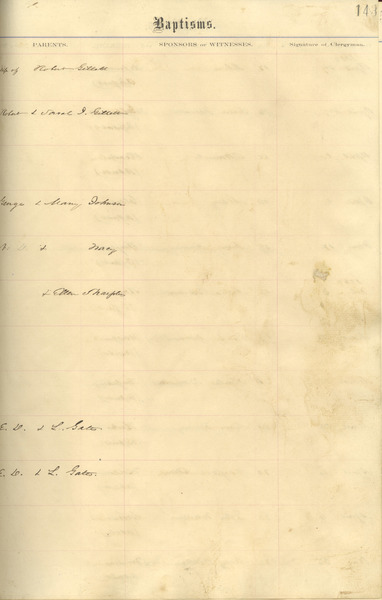 143
Baptisms.
PARENTS. SPONSORS OR WITNESSES. Signature of Clergyman.
of Robert Gillett
Robert & Sarah J. Gillett
George & Mary Johnson
& Mary
& Ellen
E. D. & L. Gates
E. D. & L. Gates.